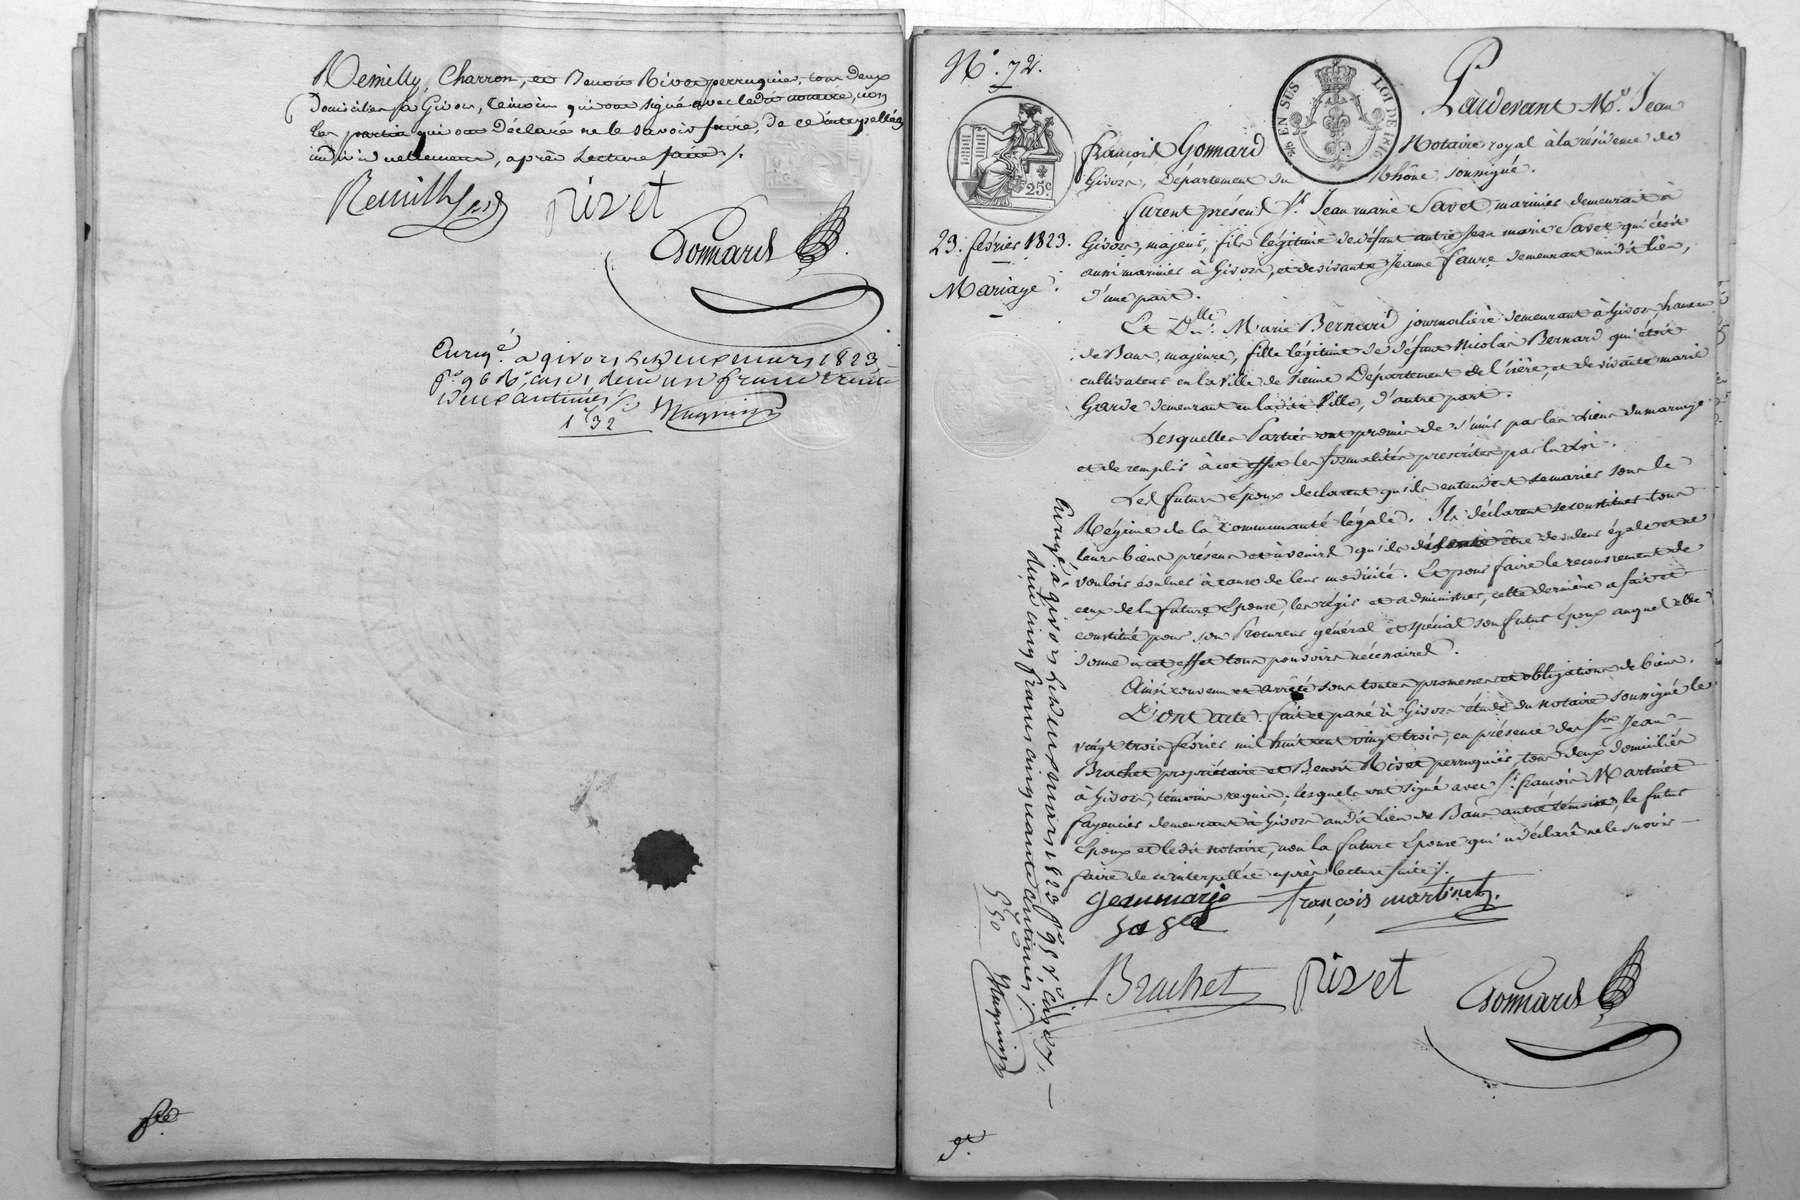 Remilly, Charron, et Benoit Rivet perruquier, tous deux
domiciliés à Givors, témoins qui ont signé avec ledit notaire, non
les parties qui ont déclaré ne le savoir faire, de ce interpellées
individuellement, après lecture faite /.
Remilly
rivet
Gonnard
Enreg.é à givors le deux mars 1823
f.o 96 R.o, c. reçu un franc trente
deux centimes
1 f 32
N.o 72.
25c
EN SUS
LOI DE 1816
23. février 1823.
Mariage.
Pardevant M.e Jean
françois Gonnard Notaire royal à la résidence de
Givors, Département du Rhône, soussigné.
furent présens S.r Jean marie Savet, marinier demeurant à
Givors, majeur, fils légitime de défunt autre Jean marie Savet qui étoit
aussi marinier à Givors, et de vivante Jeanne faure demeurant audit lieu,
d'une part.
Et D.lle Marie Bernard journalière demeurant à Givors, hameau
de Bans, majeure, fille légitime de défunt Nicolas Bernard qui étoit
cultivateur en la ville de Vienne Département de l'isère, et de vivante marie
Garde demeurant en ladite Ville, d'autre part.
Lesquelles Parties ont promis de s'unir par les Liens du mariage
et de remplir à cet effet les formalités prescrites par la Loi.
Les future Epoux déclarent qu'ils entendent se marier sous le
Régime de la communauté légale. Ils déclarent se constituer tous
leurs biens présens et à venir qu'ils être de valeur égale et ne
vouloir évaluer à cause de leur modicité. Et pour faire le recouvrement de
ceux de la future Epouse, les régir et administrer, cette dernière a fait et
constitué pour son Procureur général et spécial son futur Epoux auquel elle
donne à cet effet tous pouvoirs nécessaires.
Ainsi convenu et arrêté sous toutes promesses et obligations de biens.
Dont acte. fait et passé à Givors étude du notaire soussigné le
vingt trois février mil huit cent vingt trois, en présence des S.rs Jean
Brachet propriétaire et Benoit Rivet perruquier, tous deux domiciliés
à Givors, témoins requis, lesquels ont signé avec S.r françois Martinet
fayencier demeurant à Givors audit lieu de Bans autre témoin, le futur
Epoux et ledit notaire, non la future Epouse qui a déclaré ne le savoir
faire de ce interpellée après lecture faite /.
jean marie
françois martinet
Brachet
rivet
Gonnard
Enreg.é à givors le deux mars 1823 f.o 95 v.o, c. 7.
Reçu cinq francs cinquante centimes /.
5 f 50